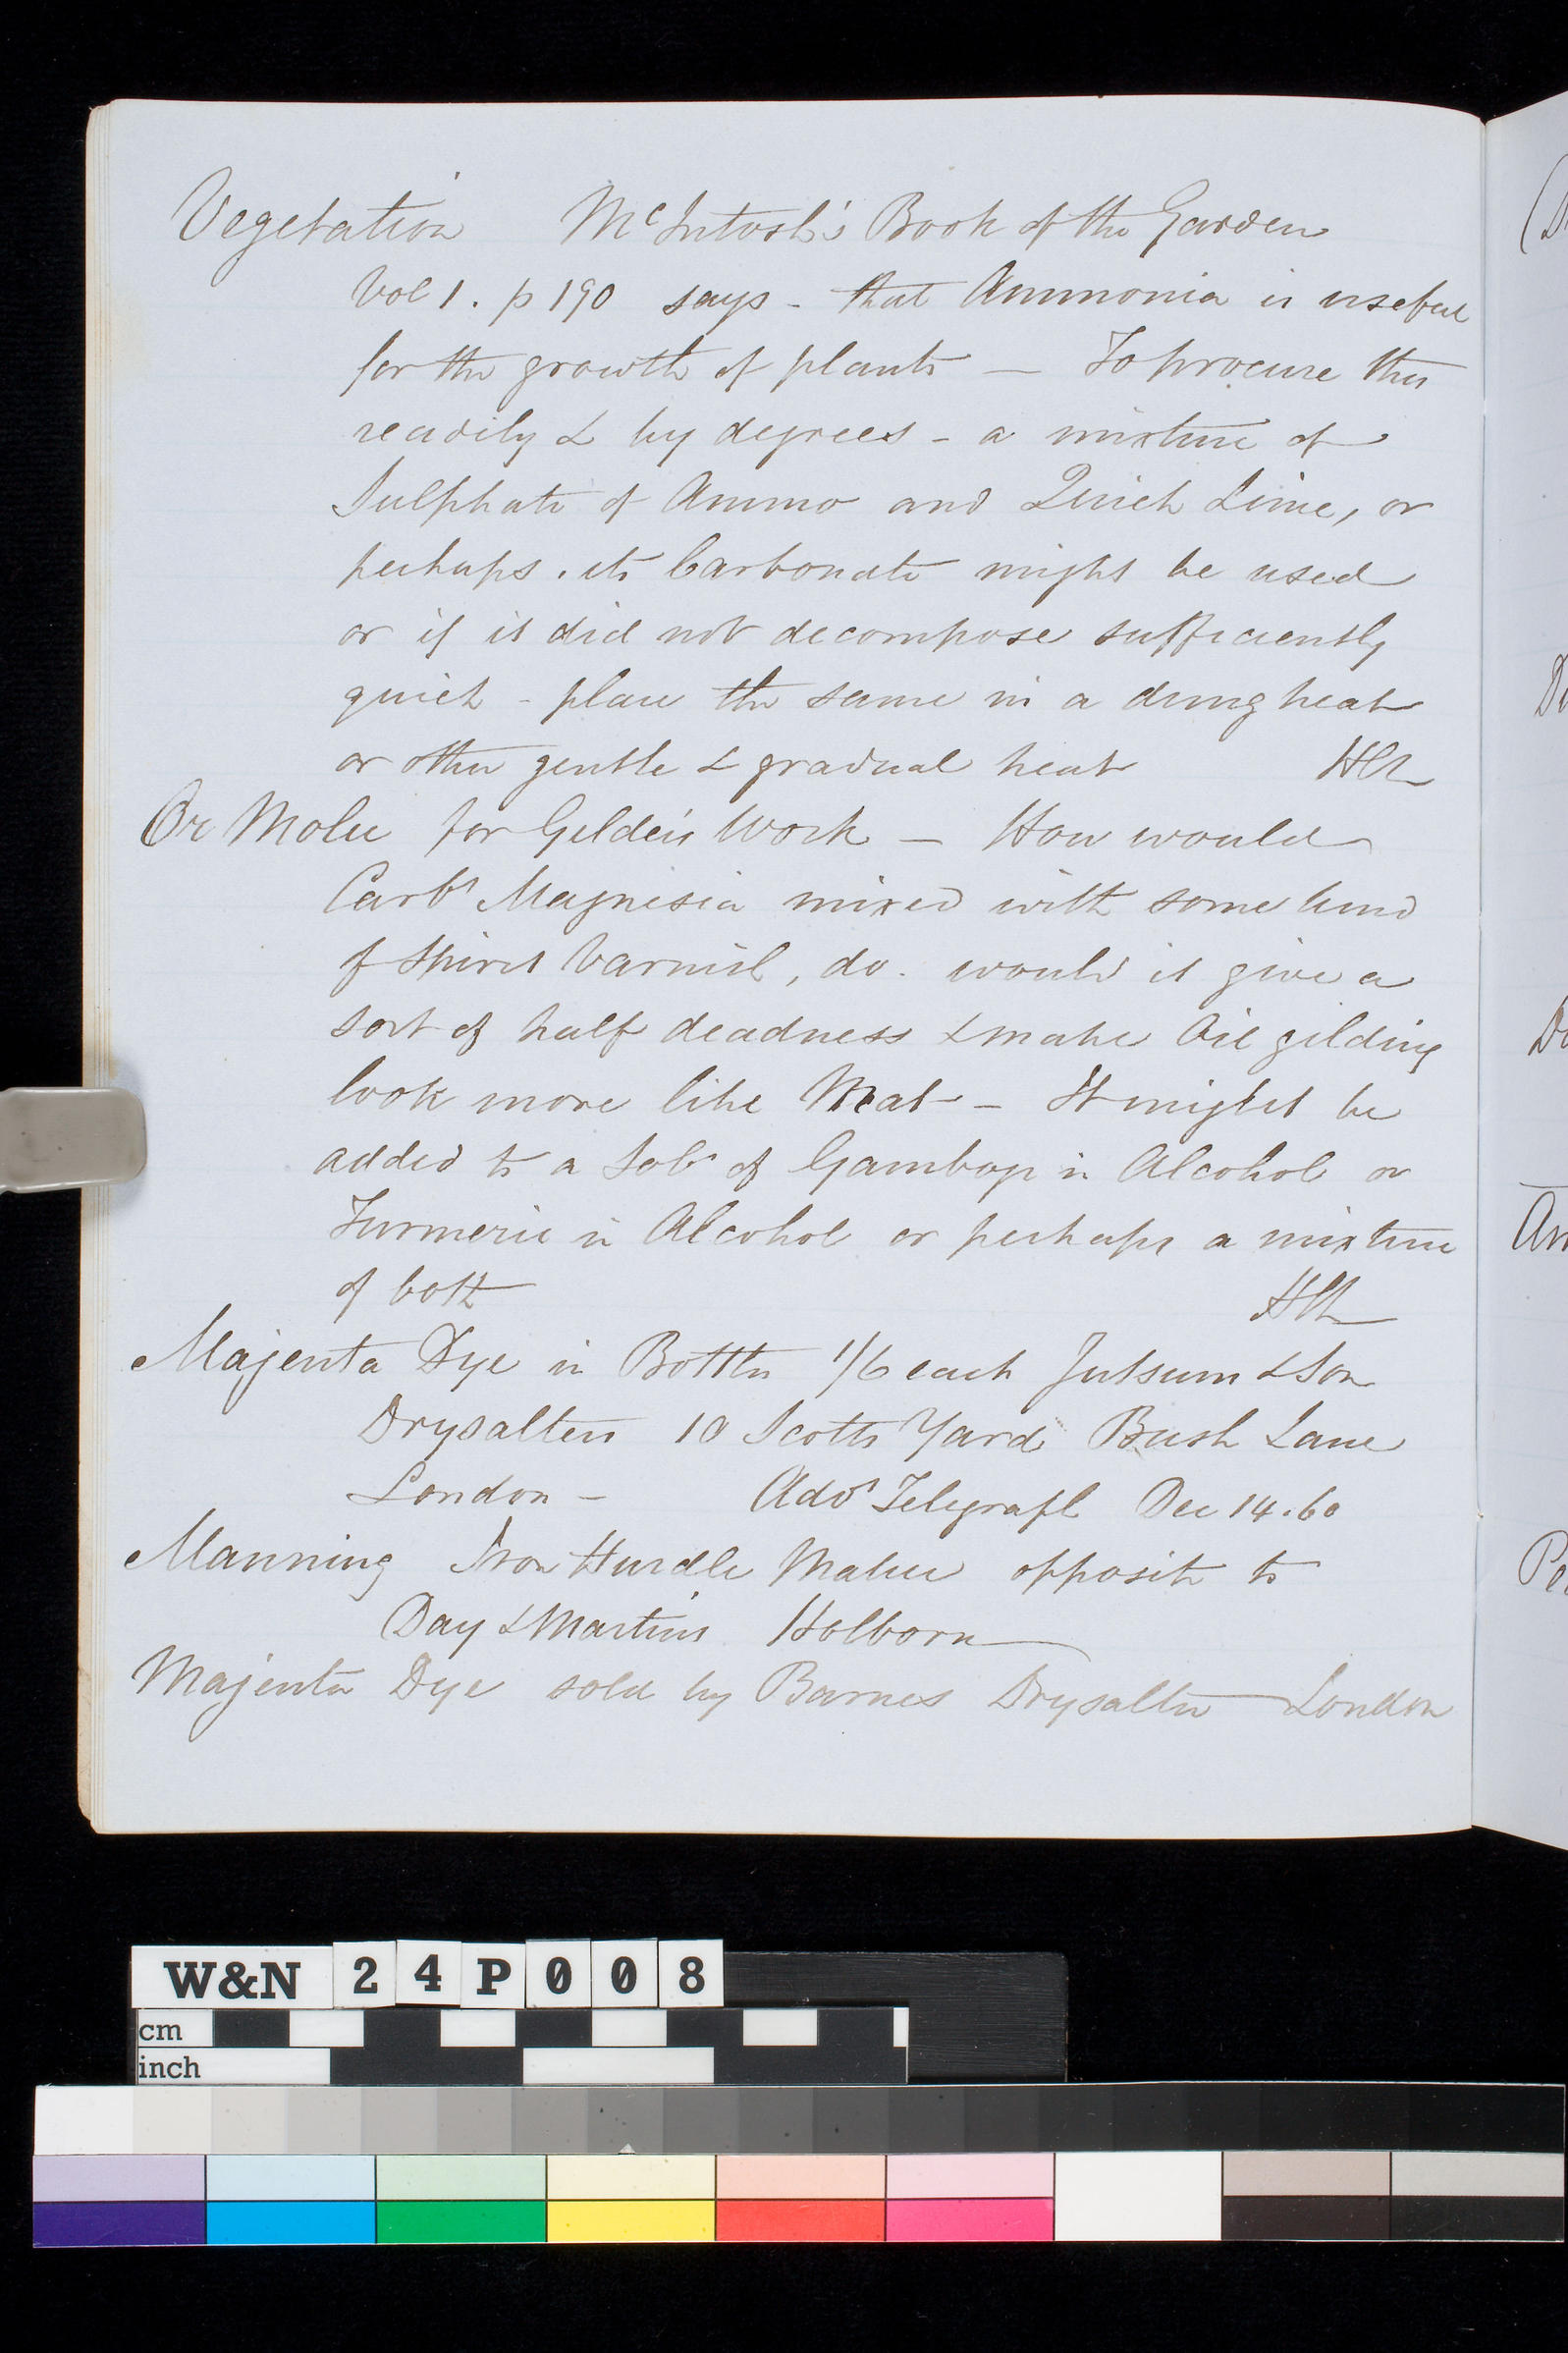 Vegetation McIntosh's Book of the Garden
Vol 1. p 190 says - that Ammonia is useful
for the growth of plants — To procure this
readily & by degrees - a mixture of
Sulphate of Ammo and Quick Lime, or
perhaps. its Carbonate might be used
or if it did not decompose sufficiently
quick - place the same in a dung heat
or other gentle & gradual heat
Or Molu for Gilder's Work — How would
Carbt Magnesia mixed with some kind
of Spirit Varnish, do. would it give a
sort of half deadness & make Oil gilding
look more like Mat - It might be
added to a Soln of Gamboge in Alcohol or
Turmeric in Alcohol or perhaps a mixture
of both
Majenta Dye in Bottles 1/6 each Jutsum & Son
Drysalters 10 Scotts Yard Bush Lane
London - Advt Telegraph Dec 14.60
Manning Iron Hurdle Maker opposite to
Day & Martins Holborn
Majenta Dye sold by Barnes Drysalter London
W&N 24P008
cm
inch